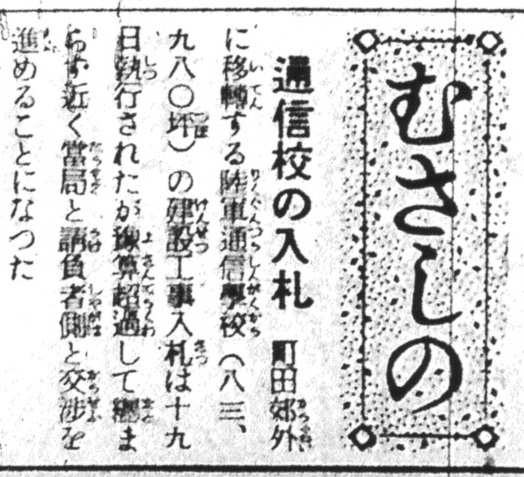 むさしの
通信校の入札 町田郊外
に移轉する陸軍通信學校（八三、
九八〇坪）の建設工事入札は十九
日執行されたが豫算超過して纏ま
らず近く當局と請負者側と交渉を
進めることになつた